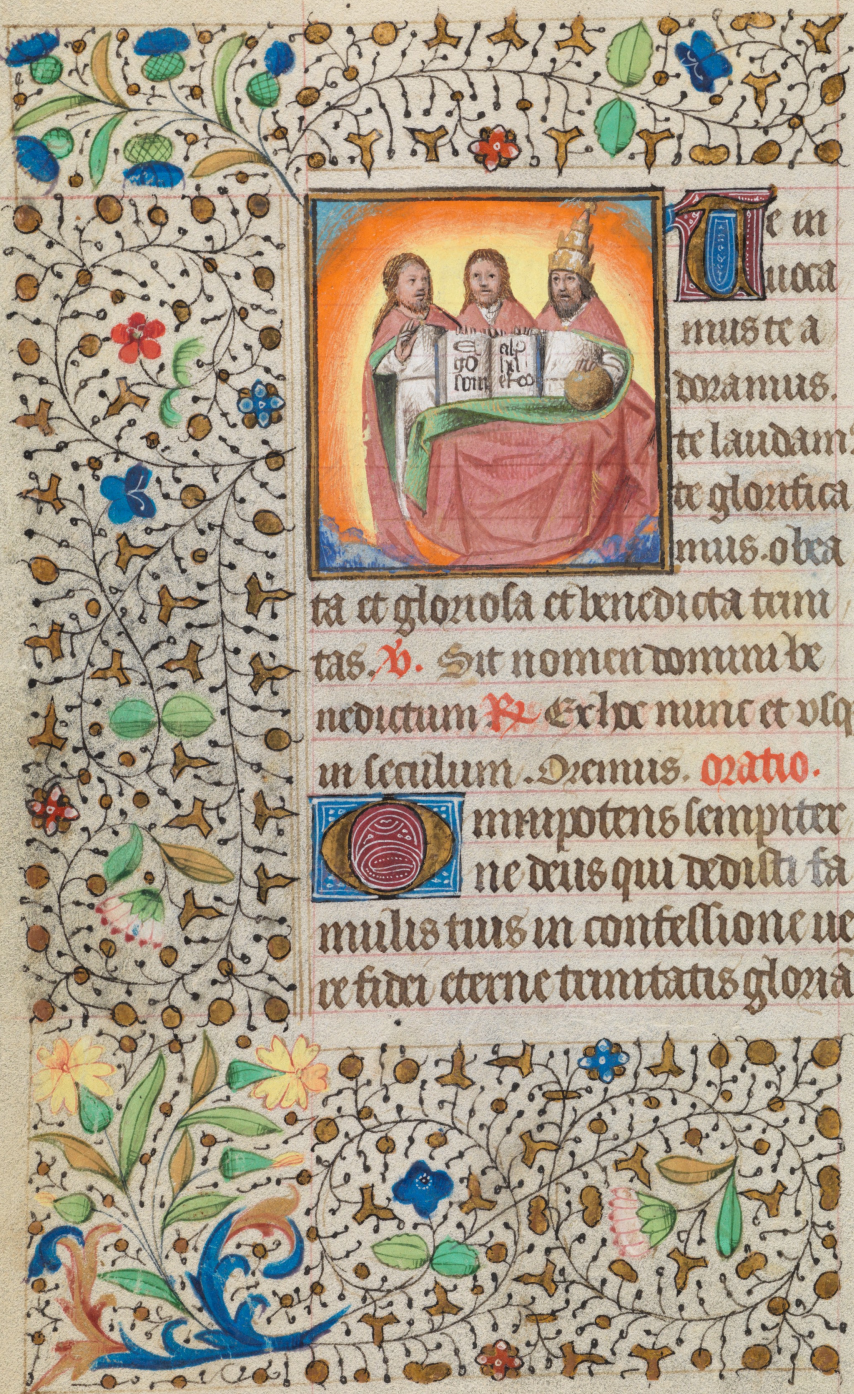 Ego
sum
alp
ha
et ω
Te in
uoca
mus te a
doramus.
te laudam9
te glorifica
mus. o bea
ta et gloriosa et benedicta trini
tas. V. Sit nomen domini be
nedictum R Ex hoc nunc et usq
in seculum. Oremus. oratio.
Omnipotens sempiter
ne deus qui dedisti fa
mulis tuis in confessione ue
re fidei eterne trinitatis gloriā